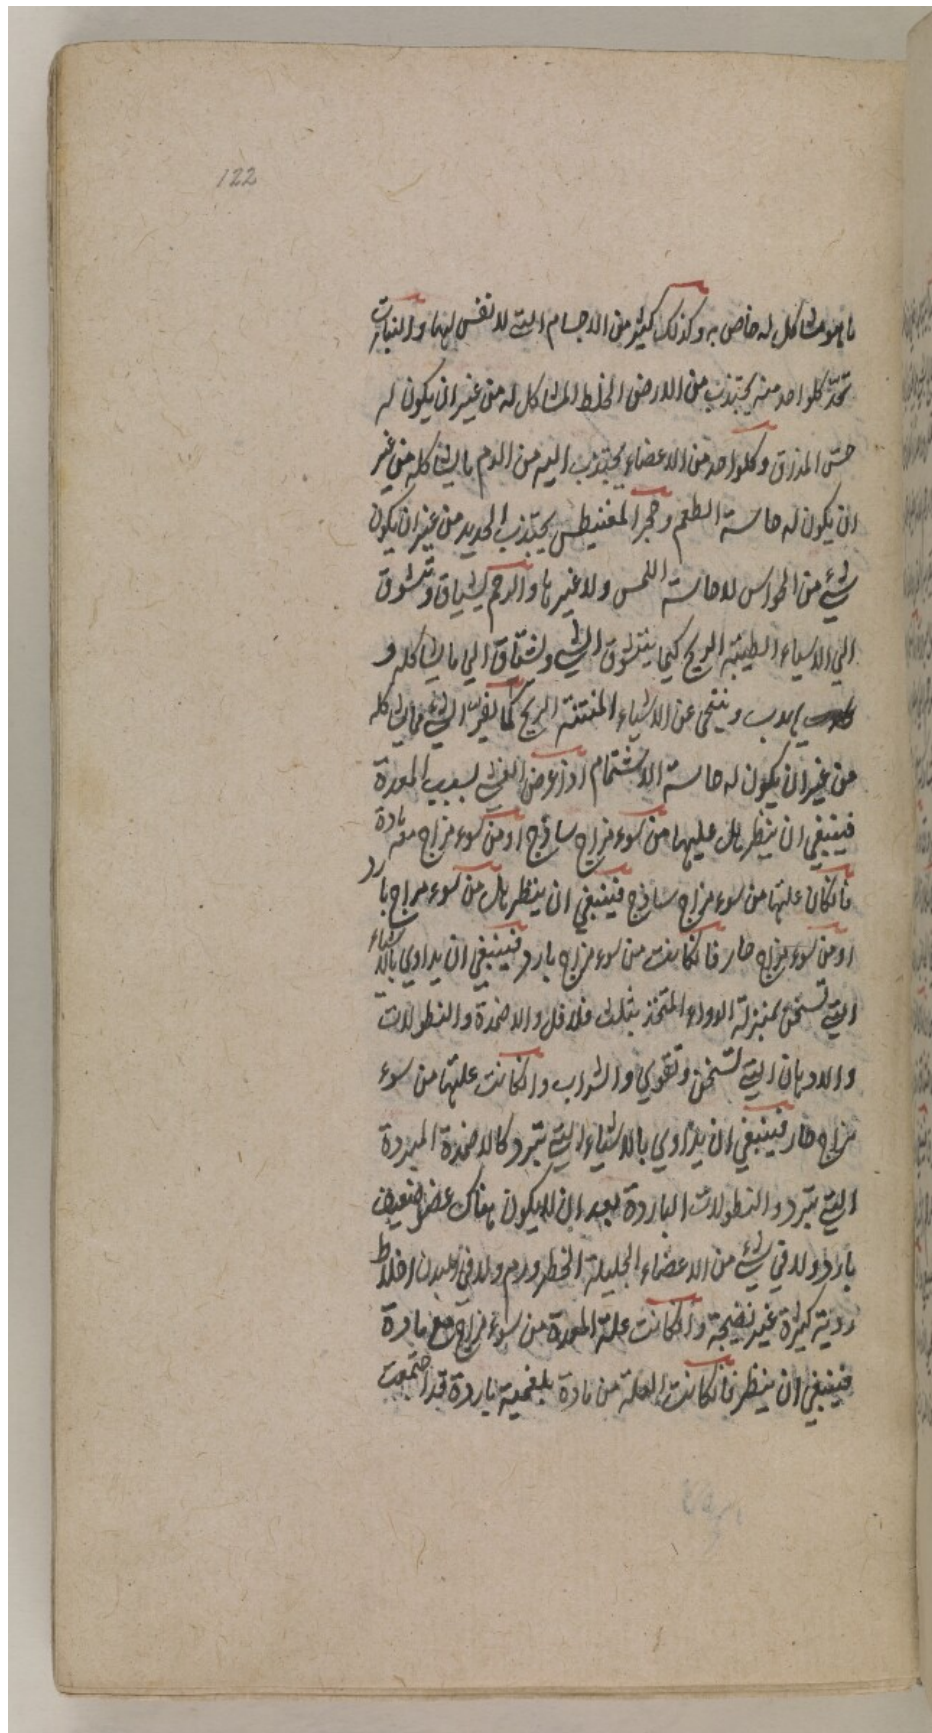 122
ما هو مشاكل له خاص به وكذلك كثير من الاجسام التي لا نفس لها والنبات
تحد كلواحد منه يجتذب من الارض الخلط المشاكل له من غير ان يكون له
حس المذاق وكلواحد من الاعضاء يجتذب اليه من الدم ما يشاكله من غير
ان يكون له حاسة الطعم وحجر المغنيطس يجتذب الحديد من غير ان يكون
شئ من الحواس لا حاسة اللمس ولا غيرها والرحم يشتاق وتتشوق
الي الاشياء الطيبة الريح كما يتشوق الشي ويشتاق الي ما يشاكله و
يهرب ويتنحى عن الاشياء المنتنة الريح كما يفر الشئ مما يشاكله
من غير ان يكون له حاسة الاشتمام اذا عرض الغشي لسبب المعدة
فينبغي ان ينظر هل علتها من سوء مزاج ساذج او من سوء مزاج معه مادة
فانكان علتها من سوء مزاج ساذج فينبغي ان ينظر هل من سوء مزاج بارد
او من سوء مزاج حار فانكانت من سوء مزاج بارد فينبغي ان يداوي بالاشياء
التي تسخن بمنزلة الدواء المتخذ بثلث فلافل والاضمدة والنطولات
والادهان التي تسخن وتقوي والشراب وانكانت علتها من سوء
مزاج حار فينبغي ان يداوي بالاشياء التي تبرد كالاضمدة المبردة
التي تبرد والنطولات الباردة بعد ان لا يكون هناك عضو ضعيف
بارد ولا في شئ من الاعضاء الجليلة الخطر ورم ولا في البدن اخلاط
ردية كثيرة غير نضيجة وانكانت علة المعدة من سوء مزاج مع مادة
فينبغي ان ينظر فانكانت العلة من مادة بلغمية باردة قد اجتمعت